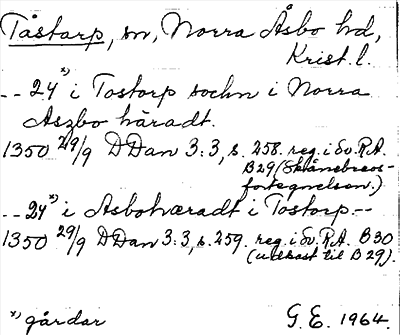 Tåstarp, sn, Norra Åsbo hd,
Krist. l.
-- 24 *) i Tostorp sochn i Norra
Aszbo häradt.
1350 29/9 DDan 3:3, s. 258. reg. i Sv. R.A.
B29 (Skånebrevs-
fortegnelsen.)
-- 24 *) i Asbohæradt i Tostorp --
1350 29/9 DDan 3:3, s. 259. reg. i Sv. R.A. B30
(udkast til B29).
*) gårdar
G.E. 1964.